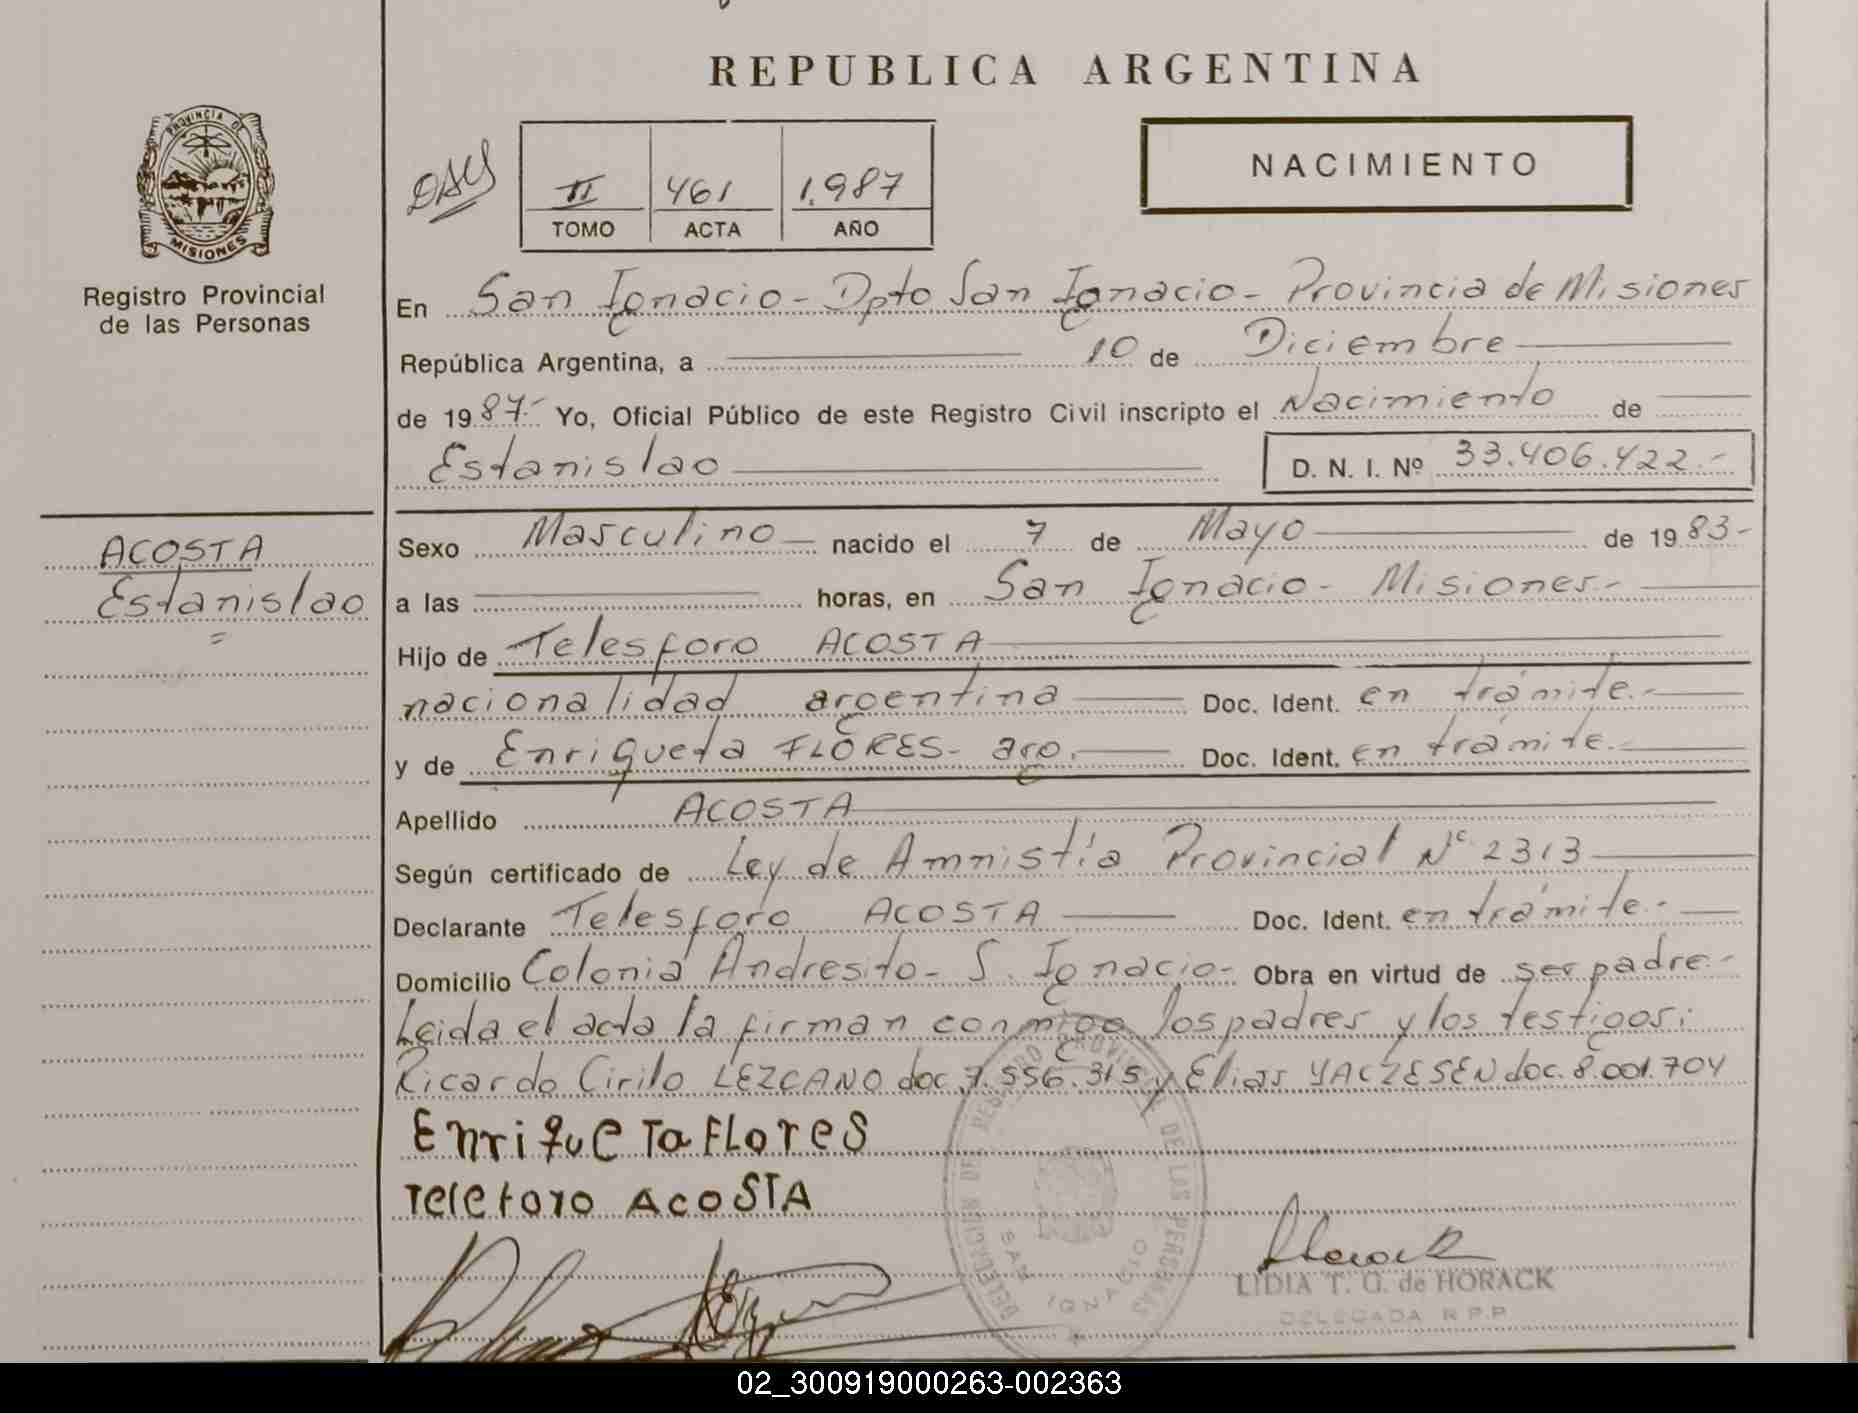 REPUBLICA ARGENTINA
PROVINCIA DE
MISIONES
Registro Provincial
de las Personas
II 461 1.987
TOMO ACTA AÑO
NACIMIENTO
En San Ignacio - Dpto San Ignacio - Provincia de Misiones
República Argentina, a 10 de Diciembre
de 1987.- Yo, Oficial Público de este Registro Civil inscripto el Nacimiento de
Estanislao D. N. I. Nº 33.406.422.-
ACOSTA
Estanislao
Sexo Masculino nacido el 7 de Mayo de 1983-
a las horas, en San Ignacio - Misiones.-
Hijo de Telesforo ACOSTA
nacionalidad argentina Doc. Ident. en trámite.-
y de Enriqueta FLORES - arg. Doc. Ident. en trámite.-
Apellido ACOSTA
Según certificado de Ley de Amnistía Provincial Nº 2313
Declarante Telesforo ACOSTA Doc. Ident. en trámite.-
Domicilio Colonia Andresito - S. Ignacio - Obra en virtud de ser padre.-
Leida el acta la firman conmigo los padres y los testigos:
Ricardo Cirilo LEZCANO doc. 7.556.315 y Elias YACZESEN doc. 8.001.704
EnriqueTa FLoreS
Teleforo ACOSTA
DELEGACION DEL REGISTRO PROVINCIAL DE LAS PERSONAS
SAN IGNACIO
LIDIA T. G. de HORACK
DELEGADA R.P.P.
02_300919000263-002363